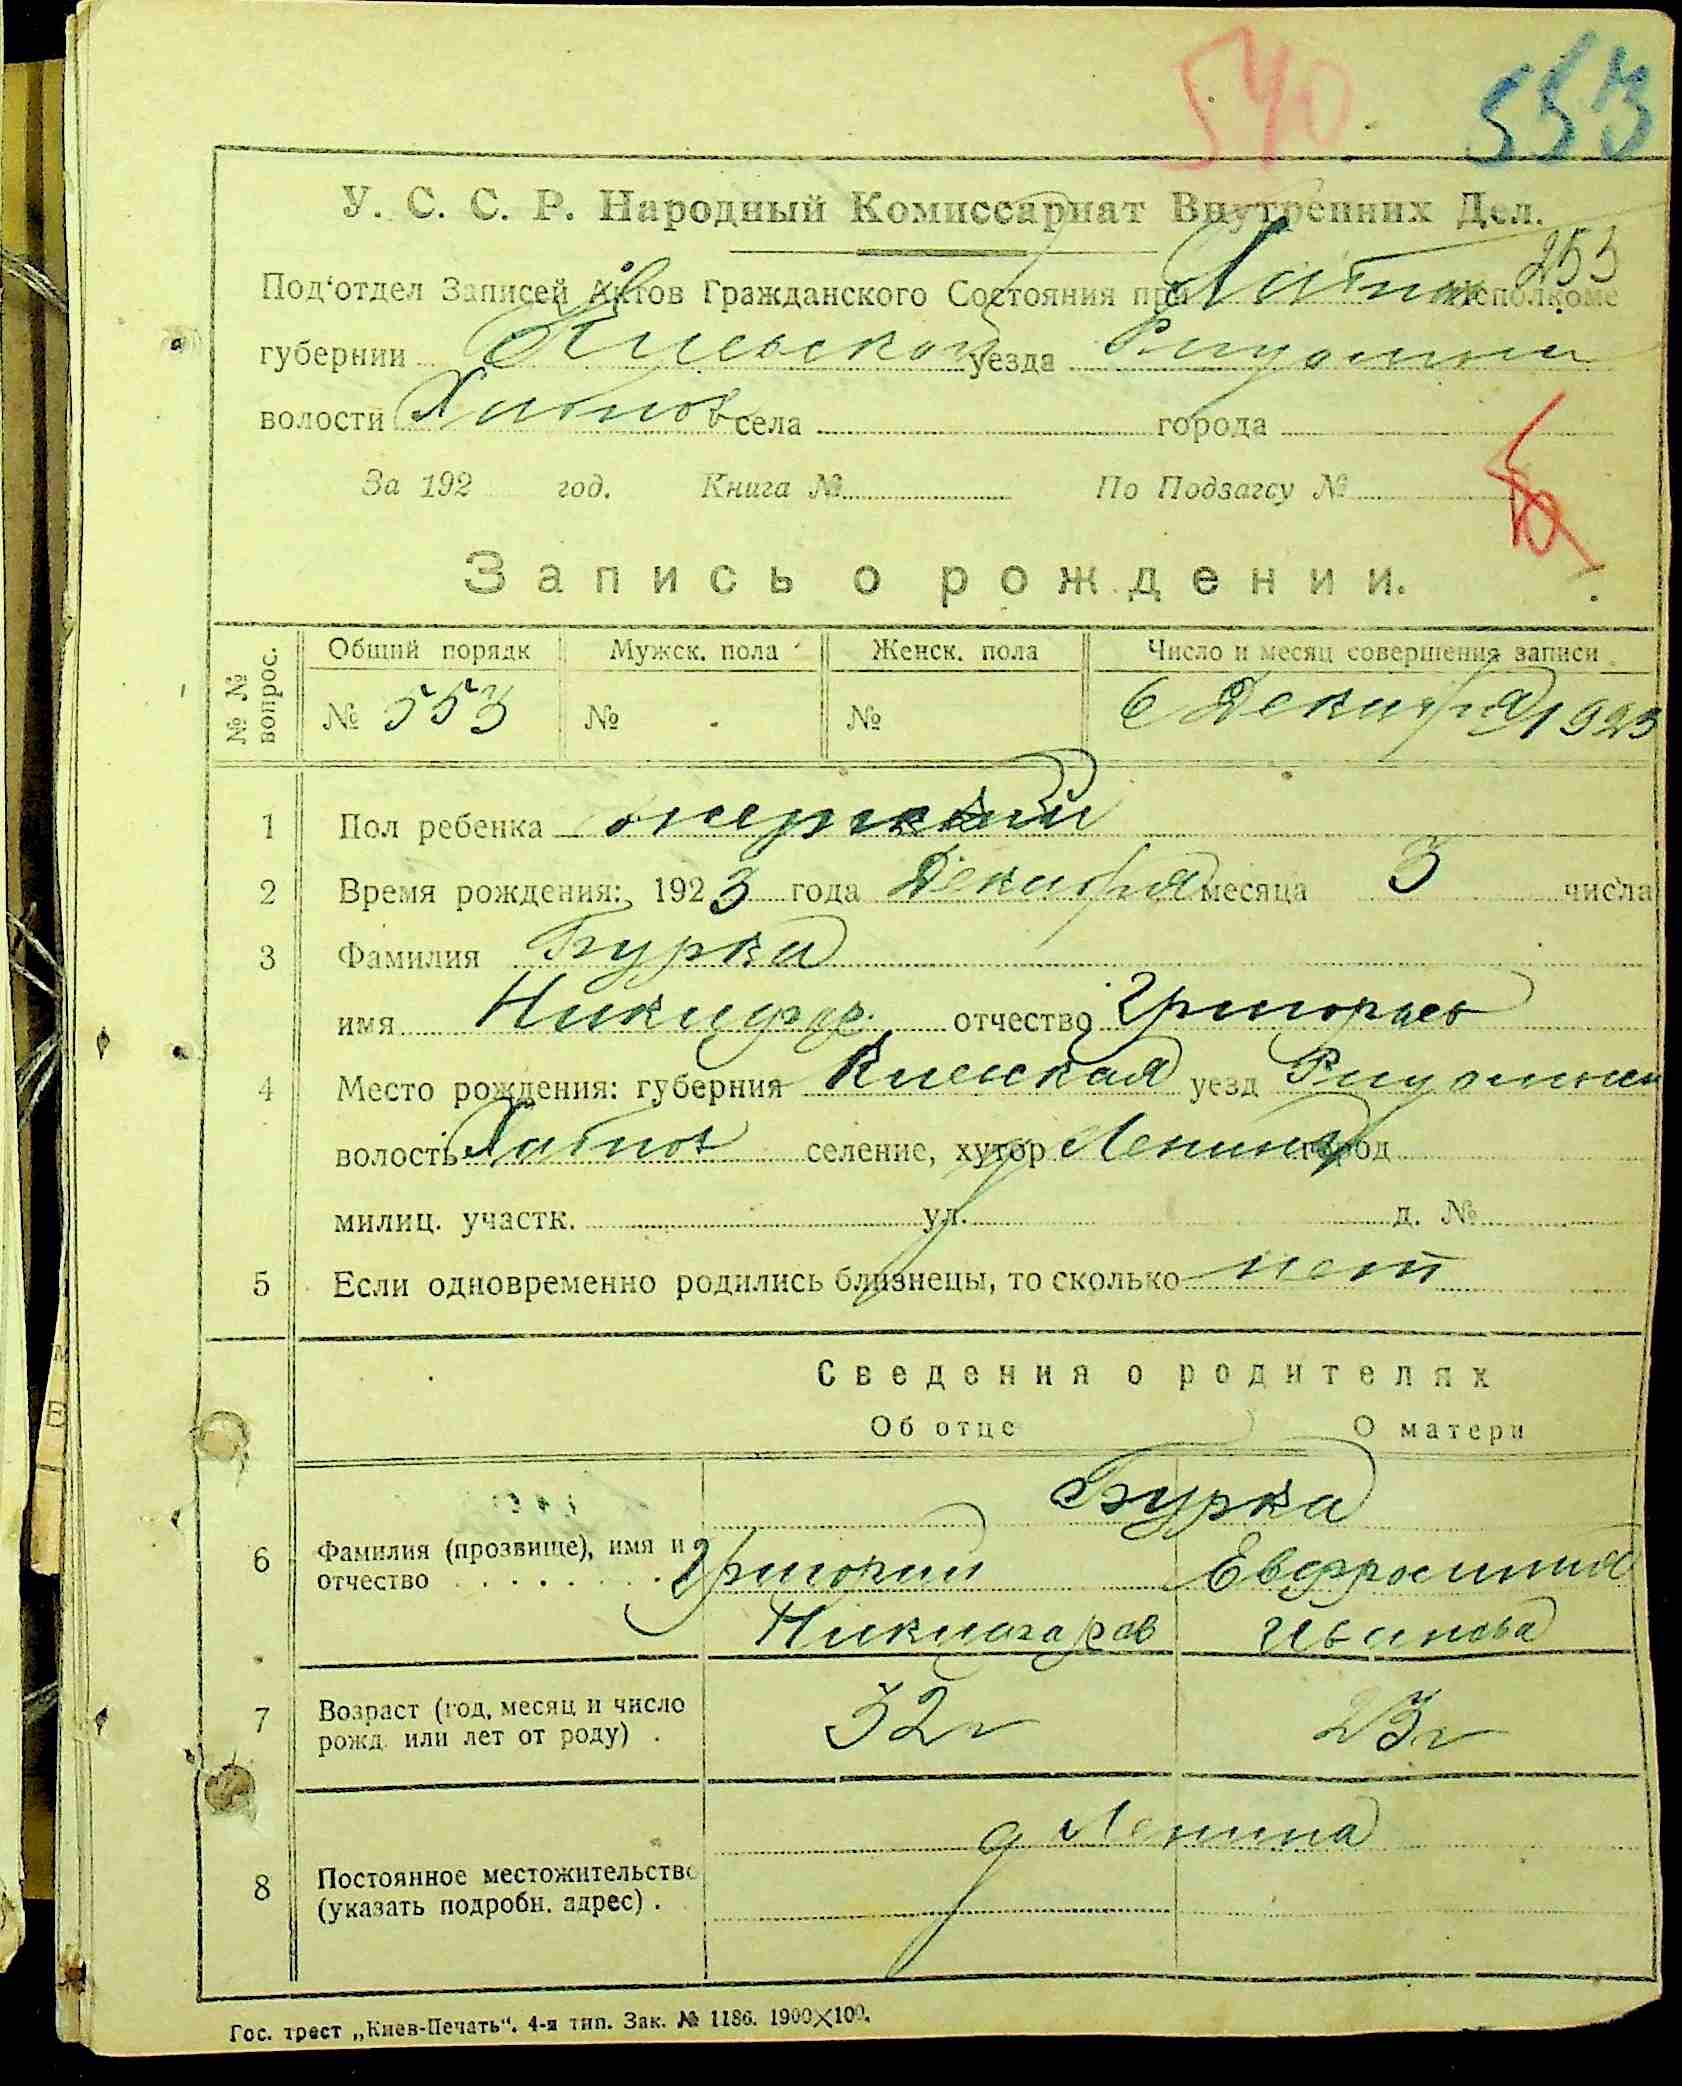 540 553
У. С. С. Р. Народный Комиссариат Внутренних Дел.
253
Под'отдел Записей Актов Гражданского Состояния при Хабном исполкоме
губернии Киевской уезда
волости Хабнов села города
За 192 год. Книга № По Подзагсу №
Запись о рождении.
№ № вопрос. Общий порядк Мужск. пола Женск. пола Число и месяц совершения записи
№ 553 № № 6 Декабря 1923
1 Пол ребенка
2 Время рождения: 1923 года Декабря месяца 3 числа
3 Фамилия Бурка
имя Никифор отчество Григорьев
4 Место рождения: губерния Киевская уезд
волость Хабнов селение, хутор д Ленина город
милиц. участк. ул. д. №
5 Если одновременно родились близнецы, то сколько нет
Сведения о родителях
Об отце О матери
Бурка
6 Фамилия (прозвище), имя и Григорий Евфросиния
отчество Никифоров Иванова
7 Возраст (год, месяц и число 32 г 23 г
рожд. или лет от роду)
д Ленина
8 Постоянное местожительство
(указать подробн. адрес)
Гос. трест „Киев-Печать“. 4-я тип. Зак. № 1186. 1900×100.